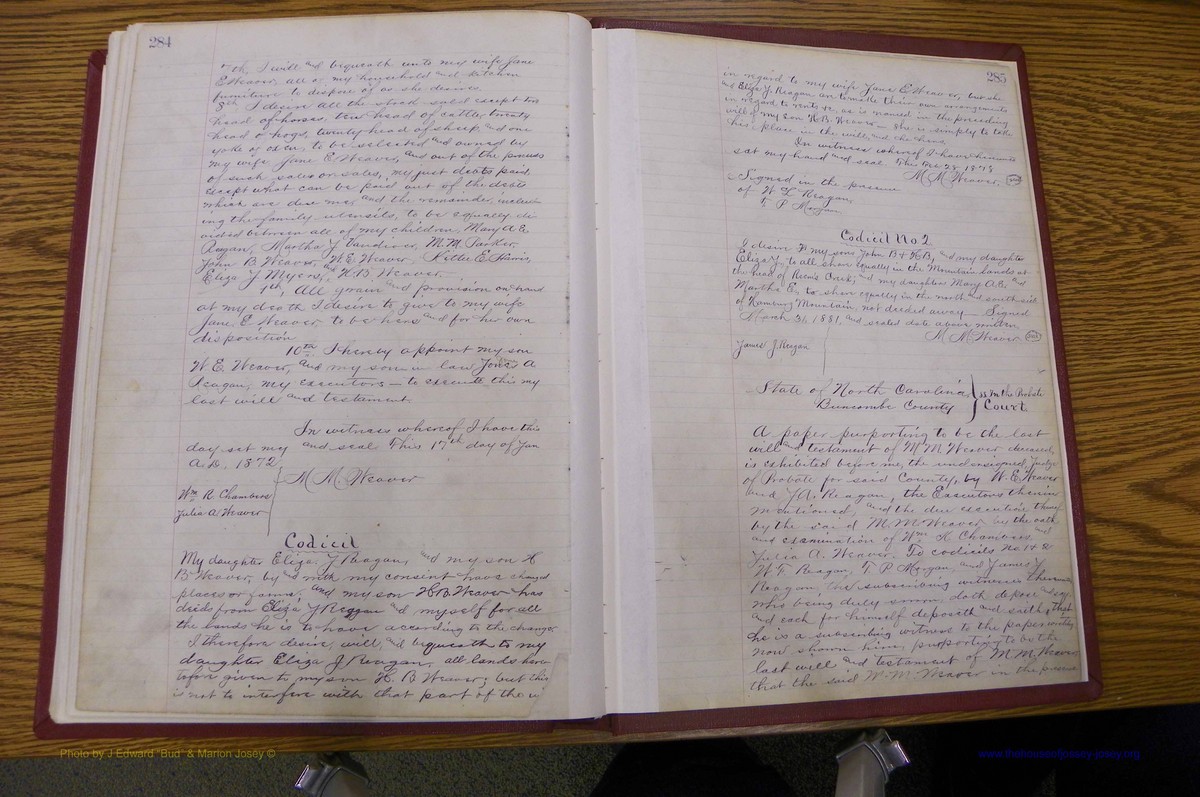 284
7th, I will and bequeath unto my wife Jane
E Weaver, all of my household and kitchen
furniture to dispose of as she desires.
8th I desire all the stock sold except two
head of horses, ten head of cattle, twenty
head of hogs, twenty head of sheep, and one
yoke of oxen, to be selected and owned by
my wife, Jane E Weaver, and out of the process
of such sales or sales, my just debts paid,
except what can be paid out of the debts
which are due me, and the remainder, includ
ing the family utensils, to be equally di
vided between all of my children, Mary A E.
Reagan, Martha J Vandiver, M. M. Parker,
John B Weaver, W. E. Weaver, Kittie E Harris,
Eliza J Myers, and H. B. Weaver.
All grain and provision on hand
at my death I desire to give to my wife
Jane E Weaver to be hers and for her own
disposition
10th I hereby appoint my son
W E. Weaver, and my son in law James A
Reagan, my executors — to execute this my
last will and testament.
In witness whereof I have this
day set my and seal This 17th day of Jan
A. D, 1872
M M Weaver
Wm R. Chambers
Julia A Weaver
Codicil
My daughter Eliza J Reagan, and my son H
B Weaver, by and with my consent have changed
places or farms, and my son H B Weaver has
deeds from Eliza J Reagan and myself for all
the lands he is to have according to the change
I therefore desire, will, and bequeath to my
daughter Eliza J Reagan, all lands here
tofore given to my son H. B Weaver; but this
is not to interfere with that part of the w
285
in regard to my wife Jane E Weaver, but she
and Eliza J. Reagan can make their own arrangements
in regard to rents &c, as is named in the preceding
will of my son H. B. Weaver – She is simply to take
his place in the will, and she hers,
In witness whereof I have hereunto
set my hand and seal This Dec 23 1873
M M Weaver. seal
Signed in the presence
of W F Reagan,
F P Morgan
Codicil No 2
I desire for my sons John B & H B, and my daughter
Eliza J. to all share equally in the Mountain lands at
the head of Reems Creek; and my daughter Mary A. E. and
Martha E, to share equally in the north and south side
of Hamburg Mountain, not deeded away – Signed
March 31, 1881, and sealed date above written
M M Weaver seal
James J. Reagan
State of North Carolina
Buncombe County
In the Probate
Court
A paper purporting to be the last
will and testament of M M Weaver deceased,
is exhibited before me, the undersigned, Judge
of Probate for said County, by W. E Weaver
and J A. Reagan, the Executors therein
mentioned, and the due execution thereof
by the said M. M Weaver by the oath
and examination of Wm R Chambers and
Julia A. Weaver. To codicils No 1 & 2
W. F. Reagan, F. P Morgan, and James J
Reagan the subscribing witnesses thereunto
who being duly sworn, doth depose and say
and each for himself deposeth and saith, that
he is a subscribing witness to the paper writing
now shown him, purporting to be the
last will and testament of M M Weaver
that the said M. M. Weaver in the presence
Photo by J Edward "Bud" & Marion Josey ©
www.thehouseofjosey-josey.org